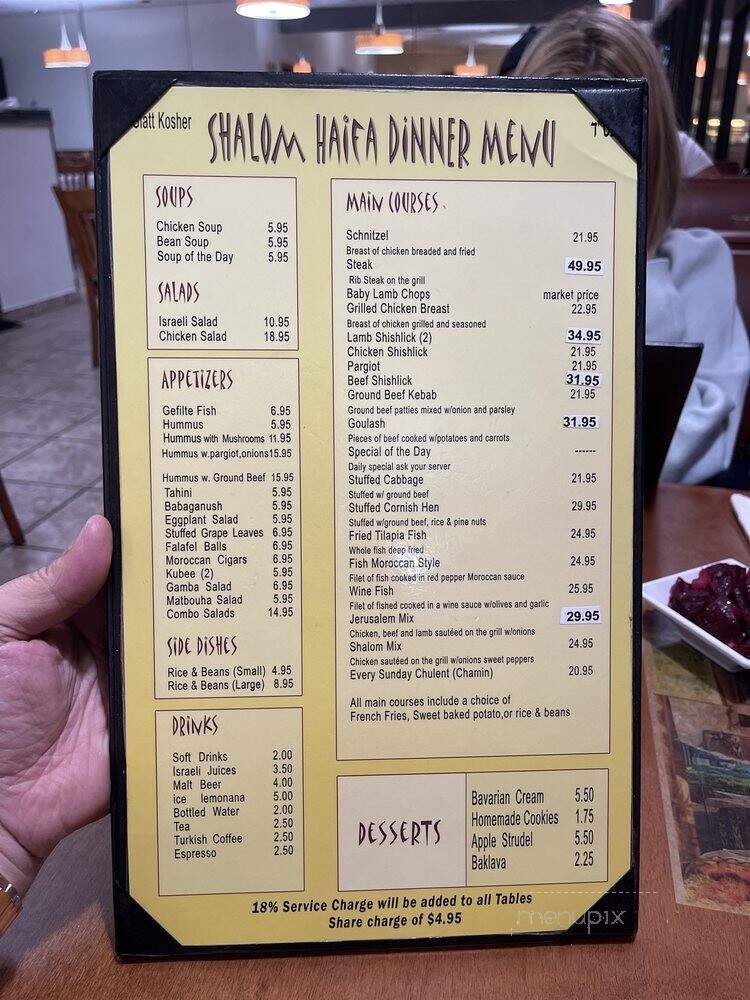 Glatt Kosher
SHALOM HAIFA DINNER MENU
SOUPS
Chicken Soup 5.95
Bean Soup 5.95
Soup of the Day 5.95
SALADS
Israeli Salad 10.95
Chicken Salad 18.95
APPETIZERS
Gefilte Fish 6.95
Hummus 5.95
Hummus with Mushrooms 11.95
Hummus w.pargiot,onions 15.95
Hummus w. Ground Beef 15.95
Tahini 5.95
Babaganush 5.95
Eggplant Salad 5.95
Stuffed Grape Leaves 6.95
Falafel Balls 6.95
Moroccan Cigars 6.95
Kubee (2) 5.95
Gamba Salad 6.95
Matbouha Salad 5.95
Combo Salads 14.95
SIDE DISHES
Rice & Beans (Small) 4.95
Rice & Beans (Large) 8.95
DRINKS
Soft Drinks 2.00
Israeli Juices 3.50
Malt Beer 4.00
ice lemonana 5.00
Bottled Water 2.00
Tea 2.50
Turkish Coffee 2.50
Espresso 2.50
MAIN COURSES
Schnitzel 21.95
Breast of chicken breaded and fried
Steak 49.95
Rib Steak on the grill
Baby Lamb Chops market price
Grilled Chicken Breast 22.95
Breast of chicken grilled and seasoned
Lamb Shishlick (2) 34.95
Chicken Shishlick 21.95
Pargiot 21.95
Beef Shishlick 31.95
Ground Beef Kebab 21.95
Ground beef patties mixed w/onion and parsley
Goulash 31.95
Pieces of beef cooked w/potatoes and carrots
Special of the Day ------
Daily special ask your server
Stuffed Cabbage 21.95
Stuffed w/ ground beef
Stuffed Cornish Hen 29.95
Stuffed w/ground beef, rice & pine nuts
Fried Tilapia Fish 24.95
Whole fish deep fried
Fish Moroccan Style 24.95
Filet of fish cooked in red pepper Moroccan sauce
Wine Fish 25.95
Filet of fished cooked in a wine sauce w/olives and garlic
Jerusalem Mix 29.95
Chicken, beef and lamb sautéed on the grill w/onions
Shalom Mix 24.95
Chicken sautéed on the grill w/onions sweet peppers
Every Sunday Chulent (Chamin) 20.95
All main courses include a choice of
French Fries, Sweet baked potato,or rice & beans
DESSERTS
Bavarian Cream 5.50
Homemade Cookies 1.75
Apple Strudel 5.50
Baklava 2.25
18% Service Charge will be added to all Tables
Share charge of $4.95
menupix